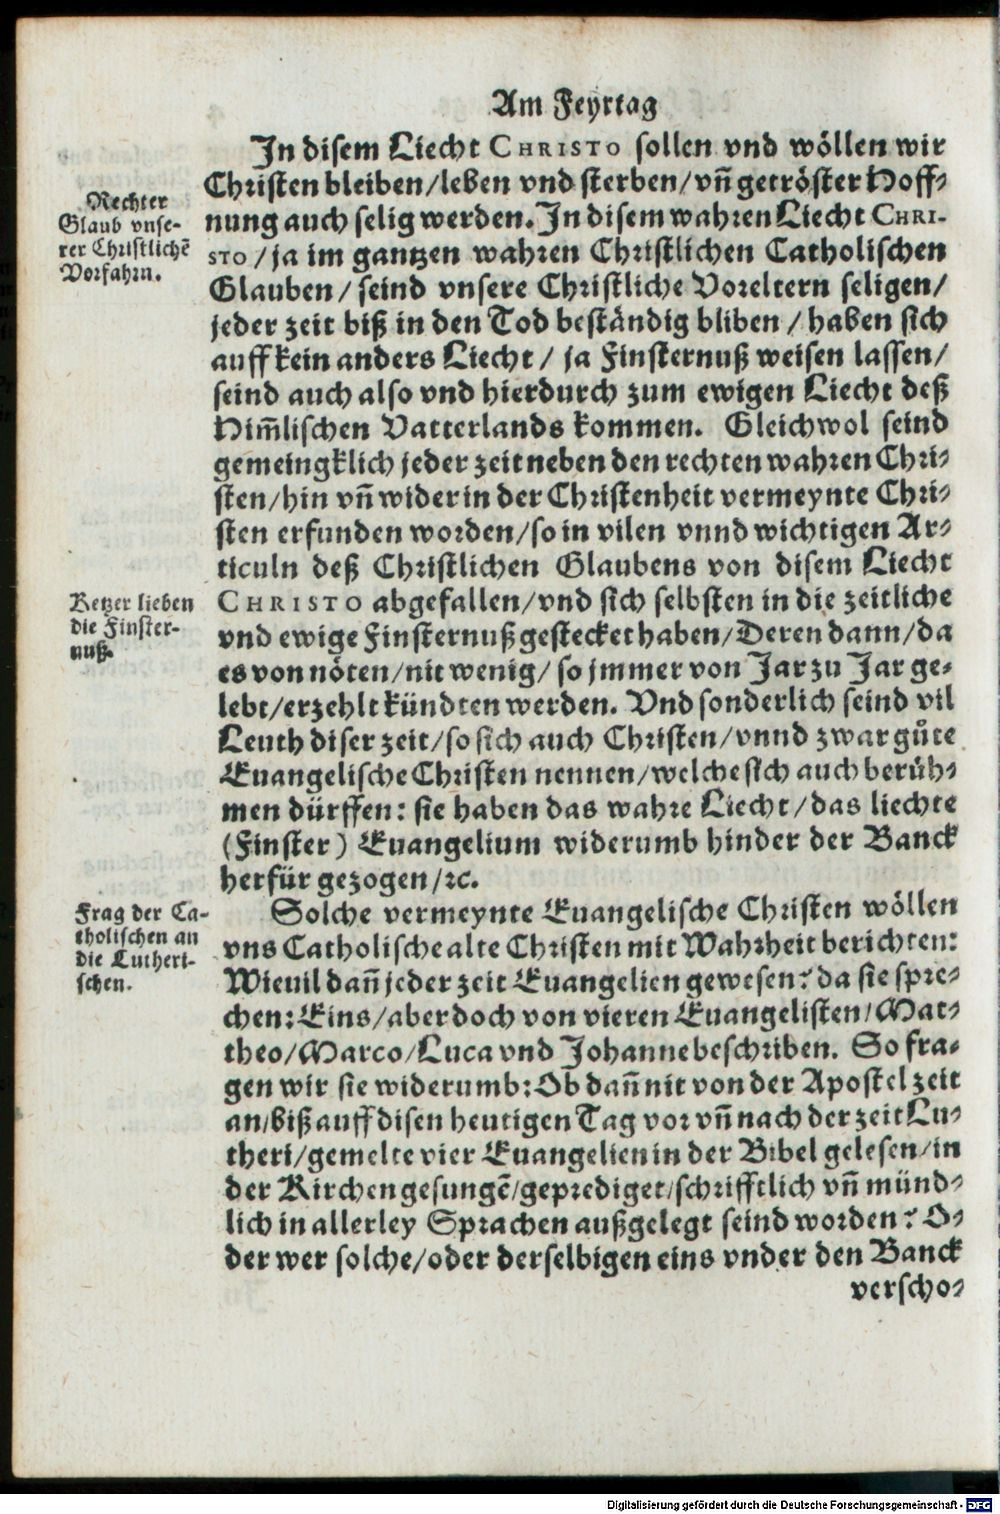 Am Feyrtag
In disem Liecht CHRISTO sollen vnd wöllen wir
Christen bleiben/leben vnd sterben/vñ getröster Hoff-
nung auch selig werden. In disem wahren Liecht CHRI-
STO/ja im gantzen wahren Christlichen Catholischen
Glauben/ seind vnsere Christliche Voreltern seligen/
jeder zeit biß in den Tod beständig bliben / haben sich
auff kein anders Liecht / ja Finsternuß weisen lassen/
seind auch also vnd hierdurch zum ewigen Liecht deß
Him̃lischen Vatterlands kommen. Gleichwol seind
gemeingklich jeder zeit neben den rechten wahren Chri-
sten/hin vñ wider in der Christenheit vermeynte Chri-
sten erfunden worden/so in vilen vnnd wichtigen Ar-
ticuln deß Christlichen Glaubens von disem Liecht
CHRISTO abgefallen/vnd sich selbsten in die zeitliche
vnd ewige Finsternuß gestecket haben/Deren dann/da
es von nöten/nit wenig/ so jmmer von Jar zu Jar ge-
lebt/erzehlt kündten werden. Vnd sonderlich seind vil
Leuth diser zeit/so sich auch Christen/vnnd zwar gůte
Euangelische Christen nennen/welche sich auch berüh-
men dürffen: sie haben das wahre Liecht/das liechte
(Finster) Euangelium widerumb hinder der Banck
herfür gezogen/ꝛc.
Solche vermeynte Euangelische Christen wöllen
vns Catholische alte Christen mit Wahrheit berichten:
Wieuil dañ jeder zeit Euangelien gewesen? da sie spre-
chen: Eins/aber doch von vieren Euangelisten/Mat-
theo/Marco/Luca vnd Johanne beschriben. So fra-
gen wir sie widerumb: Ob dañ nit von der Apostel zeit
an/biß auff disen heutigen Tag vor vñ nach der zeit Lu-
theri/gemelte vier Euangelien in der Bibel gelesen/in
der Kirchen gesungẽ/geprediget/schrifftlich vñ münd-
lich in allerley Sprachen außgelegt seind worden? O-
der wer solche/oder derselbigen eins vnder den Banck
verscho-
Rechter
Glaub vnse-
rer Christlichẽ
Vorfahrn.
Ketzer lieben
die Finster-
nuß.
Frag der Ca-
tholischen an
die Lutheri-
schen.
Digitalisierung gefördert durch die Deutsche Forschungsgemeinschaft - DFG